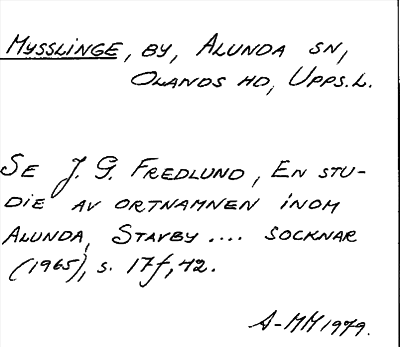 MYSSLINGE, BY, ALUNDA SN,
OLANDS HD, UPPS.L.
SE J. G. FREDLUND, EN STU-
DIE AV ORTNAMNEN INOM
ALUNDA, STAVBY .... SOCKNAR
(1965), S. 17f, 42.
A-MM 1979.